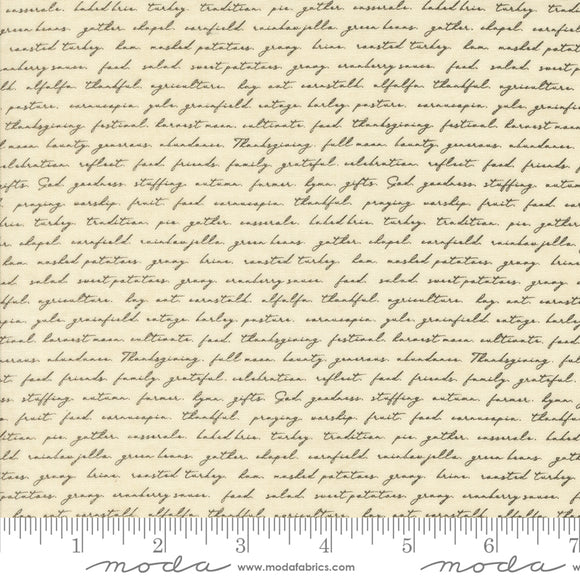 casserole. baked brie. turkey. tradition. pie. gather. casserole. baked brie. turkey.
green beans. gather. chapel. cornfield. rainbow jello. green beans. gather. chapel. cornfield
roasted turkey. ham. mashed potatoes. gravy. brine. roasted turkey. ham. mashed potatoes
cranberry sauce. food. salad. sweet potatoes. gravy. cranberry sauce. food. salad. sweet
alfalfa. thankful. agriculture. hay. oat. cornstalk. alfalfa. thankful. agriculture.
pasture. cornucopia. yule. grainfield. cotage. barley. pasture. cornucopia. yule. grainfield
thanksgiving. festival. harvest moon. cultivate. food. thanksgiving. festival. harvest moon
moon. bounty. generous. abundance. Thanksgiving. full moon. bounty. generous. abundance.
celebration. reflect. food. friends. family. grateful. celebration. reflect. food. friends.
gifts. God. goodness. stuffing. autumn. farmer. hymn. gifts. God. goodness. stuffing. autumn
praying. worship. fruit. food. cornucopia. thankful. praying. worship. fruit. food.
brie. turkey. tradition. pie. gather. casserole. baked brie. turkey. tradition. pie. gather
chapel. cornfield. rainbow jello. green beans. gather. chapel. cornfield. rainbow jello.
ham. mashed potatoes. gravy. brine. roasted turkey. ham. mashed potatoes. gravy. brine
salad. sweet potatoes. gravy. cranberry sauce. food. salad. sweet potatoes. gravy.
agriculture. hay. oat. cornstalk. alfalfa. thankful. agriculture. hay. oat.
yule. grainfield. cotage. barley. pasture. cornucopia. yule. grainfield. cotage. barley
harvest moon. cultivate. food. thanksgiving. festival. harvest moon. cultivate. food
abundance. Thanksgiving. full moon. bounty. generous. abundance. Thanksgiving. full
food. friends. family. grateful. celebration. reflect. food. friends. family. grateful.
stuffing. autumn. farmer. hymn. gifts. God. goodness. stuffing. autumn. farmer. hymn.
fruit. food. cornucopia. thankful. praying. worship. fruit. food. cornucopia.
pie. gather. casserole. baked brie. turkey. tradition. pie. gather. casserole. baked
rainbow jello. green beans. gather. chapel. cornfield. rainbow jello. green beans. gather
gravy. brine. roasted turkey. ham. mashed potatoes. gravy. brine. roasted turkey.
gravy. cranberry sauce. food. salad. sweet potatoes. gravy. cranberry sauce. food
oat. cornstalk. alfalfa. thankful. agriculture. hay. oat. cornstalk. alfalfa.
1 2 3 4 5 6 7
moda www.modafabrics.com moda www.modafabrics.com